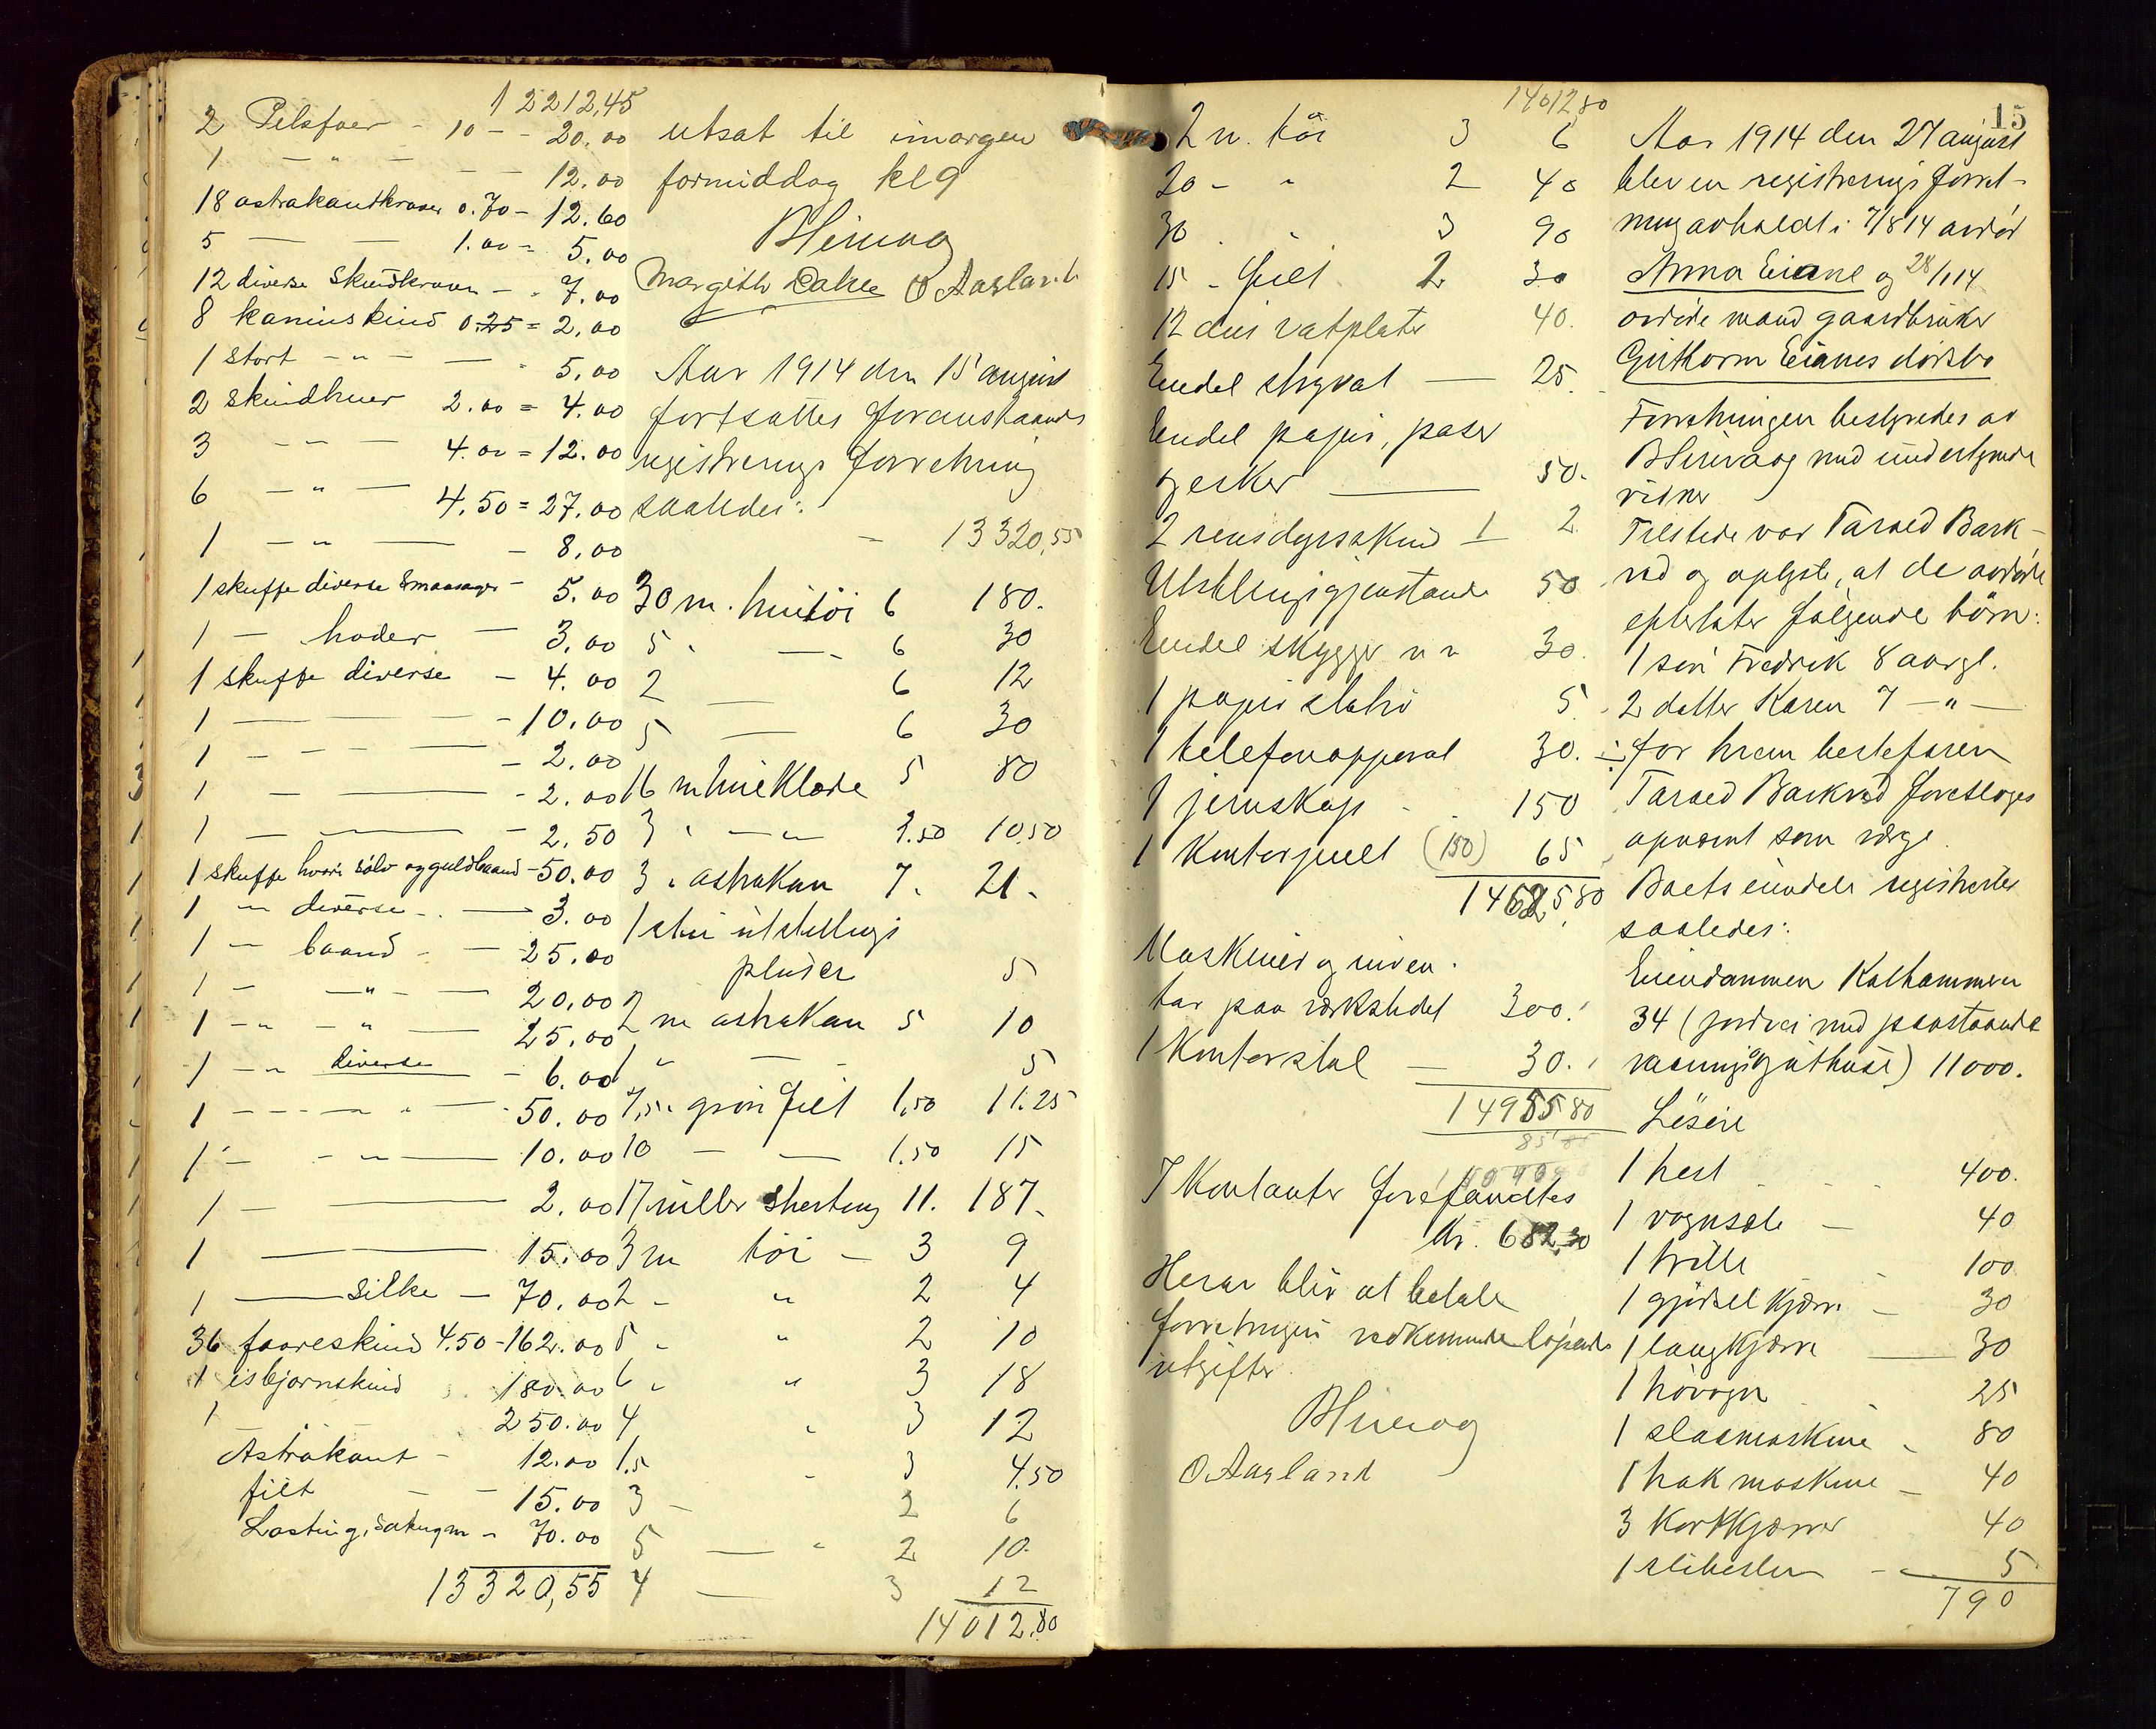 12212,45
2 Pelsfoer - 10 - - 20.00
1 - " - - - 12.00
18 astrakantkraver 0.70 - 12.60
5 — — 1.00 - 5.00
12 diverse skindkraver - - 7.00
8 kaninskind 0.25 = 2.00
1 stort - " - — - 5.00
2 skindhuer 2.00 = 4.00
3 - " - 4.00 = 12.00
6 - " - 4.50 = 27.00
1 - " - — - 8.00
1 skuffe diverse smaasager - 5.00
1 — hoder — 3.00
1 skuffe diverse - 4.00
1 — — — - 10.00
1 - - - — - 2.00
1 - — - 2.00
1 — — - 2.50
1 skuffe hvori sölv og guldbaand - 50.00
1 — diverse - — 3.00
1 — baand - — 25.00
1 - — " - — 20.00
1 - " - " — 25.00
1 - " diverse - 6.00
1 - - - " - — 50.00
1 - - " — 10.00
1 — — 2.00
1 — — 15.00
1 — silke — 70.00
36 faareskind 4.50 - 162.00
1 isbjørnskind 180.00
1 " 250.00
Astrakant - 12.00
filt - - 15.00
Lasting, - 70.00
13320,55
utsat til imorgen
formiddag kl 9
BHinvaag
Margith O Aasland
Aar 1914 den 15 august
fortsattes foranstaaende
registrerings forretning
saaledes:
- 13320,55
30 m. huetöi 6 180.
5 " — - 6 30
2 — 6 12
5 — 6 30
16 m hueklæde 5 80
3 " — " 3.50 10.50
3 " astrakan 7. 21.-
1 stui utstillings
plyser 5
2 m astrakan 5 10
1 " — - 5
7,5 " grön filt 1,50 11.25
10 — — 1.50 15
17 ruller sherting 11. 187.-
3 m töi — 3 9
2 - " 2 4
5 - " 2 10
6 " " 3 18
4 " 3 12
1.5 - 3 4.50
3 - 2 6
5 — " 2 10.
4 — 3 12
14012.80
14012 80
2 m. töi 3 6
20 - " 2 40
30 . " 3 90
15 - filt 2 30
12 dus vatplater 40.
Endel strygvat — 25.
Endel papir, poser
og esker — 50.
2 rensdyrsskind 1 2
Utstillingsgjenstande 50
Endel skygger m m 30.
1 papirstativ 5
1 telefonapparat 30.
1 jernskap - 150
1 kontorpult (150) 65
1462580
Maskiner og inven-
tar paa verkstedet 300.
1 Kontorstol — 30.
14955 80
I Kontanter forefandtes
kr. 682,30
Herav blir at betale
forretningen vedkommende löpende
utgifter.
BHinvaag
O Aasland
15
Aar 1914 den 27 august
blev en registrerings forret-
ning avholdt i 7/8 14 avdöd
Anna Eiane og 28/1 14
avdöde mand gaardbruker
Guttorm Eianes dödsbo
Forretningen bestyredes av
BHinvaag med undertegnede
vidner
Tilstede var Tarald Bark-
ved og oplyste, at de avdöde
efterlater följende börn:
1 sön Fredrik 8 aar gl.
2 datter Karen 7 — " —
for hvem bestefaren
Tarald Barkved foresloges
opnævnt som værge.
Boets eiendele registrertes
saaledes:
Eiendommen Kalhammeren
34 (jordvei med paastaaende
vaanings og uthuse) 11000.
Lösöre
1 hest - - - 400.
1 vognsele — 40
1 trille - 100
1 gjödselkjærre — 30
1 langkjærre — 30
1 hövogn 25
1 slaamaskine - 80
1 hakmaskine - 40
3 Karkkjærrer 40
1 slibesten - 5
790